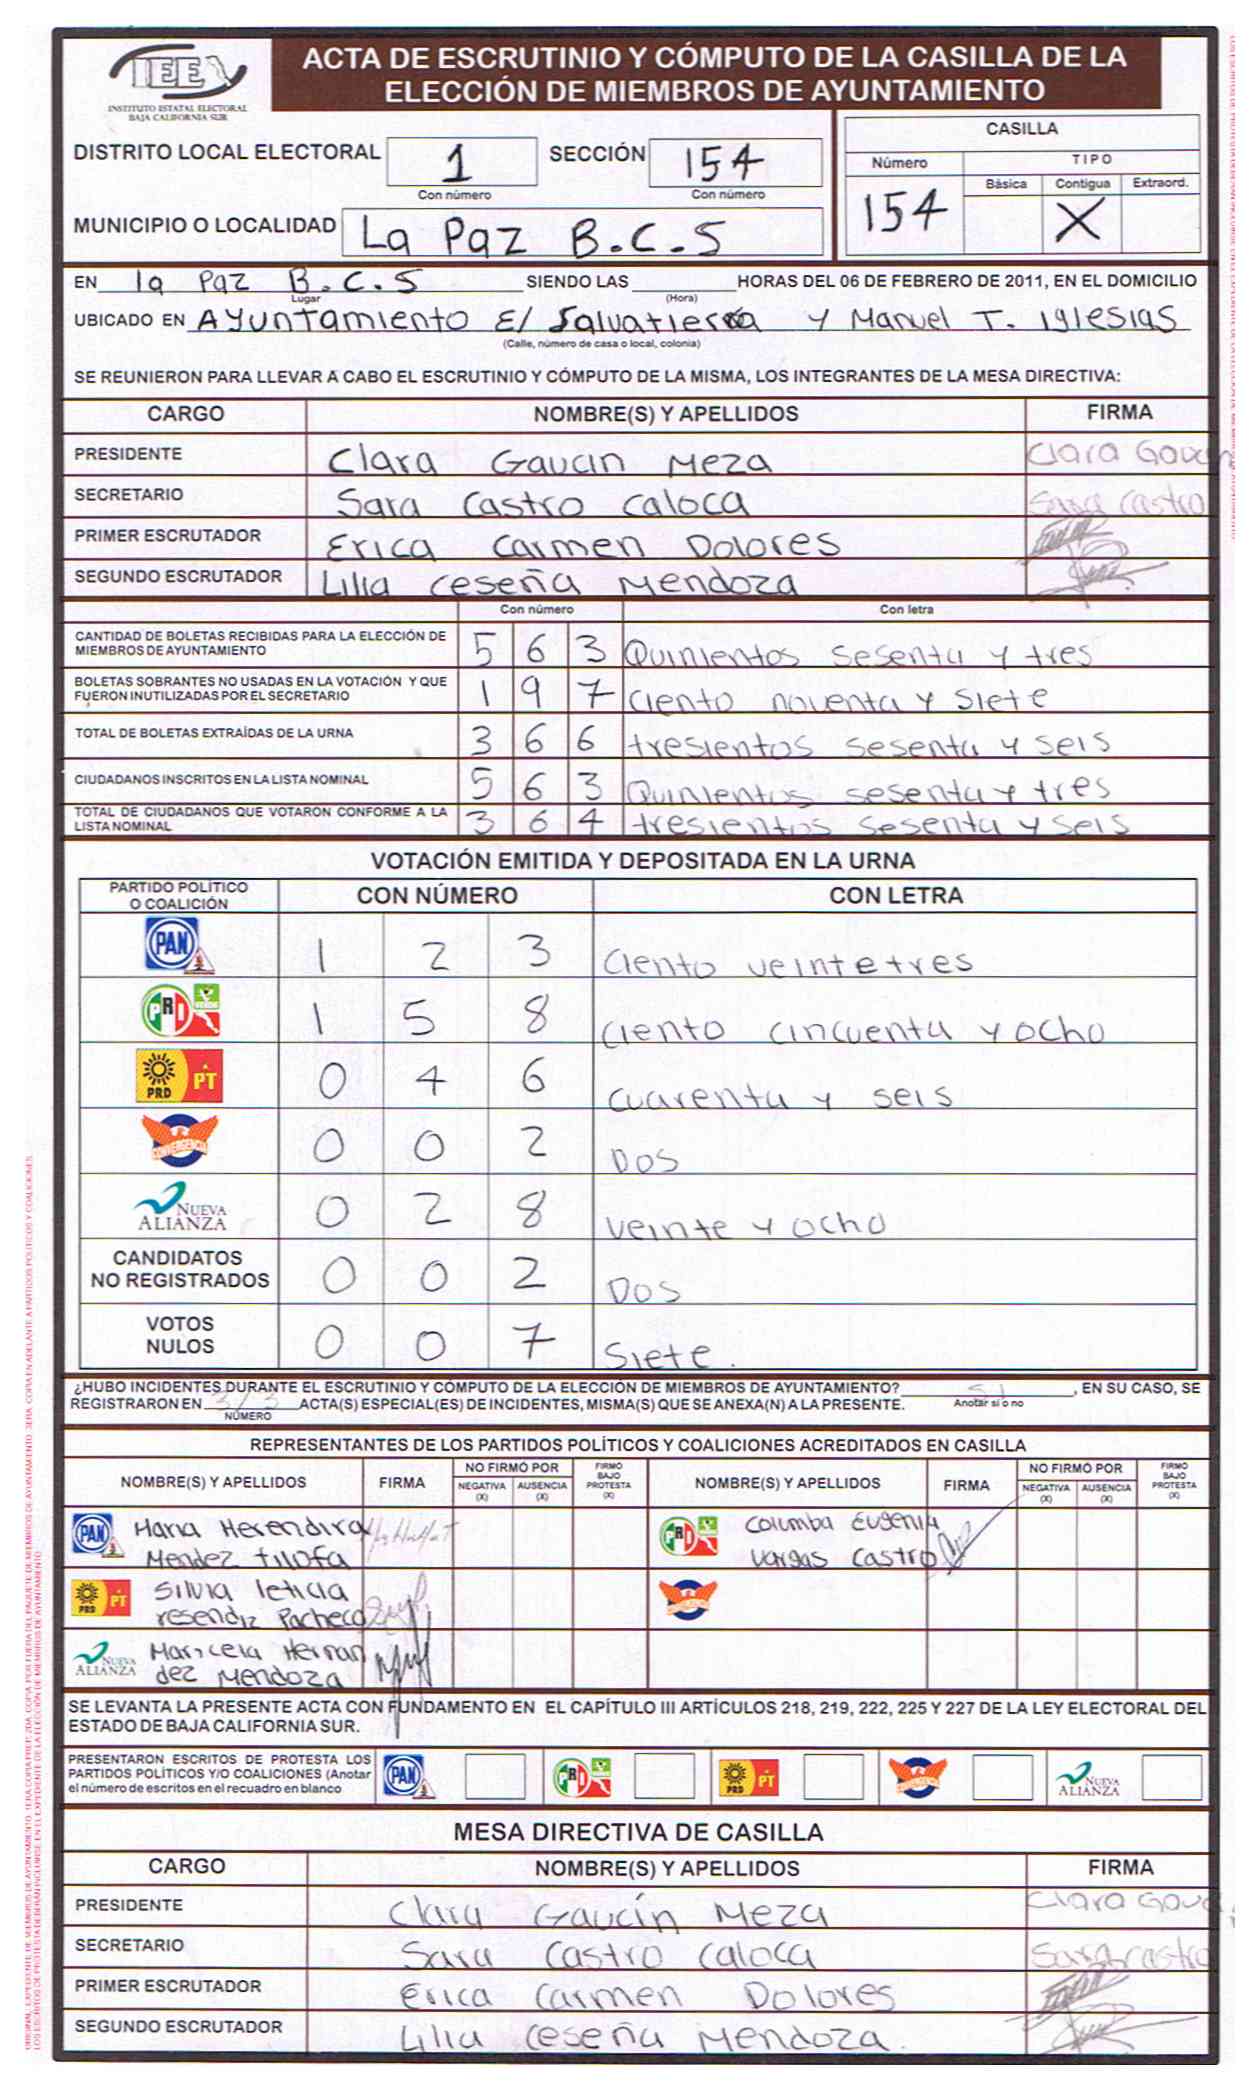 IEE
INSTITUTO ESTATAL ELECTORAL
BAJA CALIFORNIA SUR
ACTA DE ESCRUTINIO Y CÓMPUTO DE LA CASILLA DE LA
ELECCIÓN DE MIEMBROS DE AYUNTAMIENTO
DISTRITO LOCAL ELECTORAL 1 SECCIÓN 154
Con número Con número
MUNICIPIO O LOCALIDAD La Paz B.C.S
CASILLA
Número TIPO
Básica Contigua Extraord.
154 X
EN la Paz B.C.S SIENDO LAS HORAS DEL 06 DE FEBRERO DE 2011, EN EL DOMICILIO
Lugar (Hora)
UBICADO EN Ayuntamiento E/ Salvatierra y Manuel T. Iglesias
(Calle, número de casa o local, colonia)
SE REUNIERON PARA LLEVAR A CABO EL ESCRUTINIO Y CÓMPUTO DE LA MISMA, LOS INTEGRANTES DE LA MESA DIRECTIVA:
CARGO NOMBRE(S) Y APELLIDOS FIRMA
PRESIDENTE Clara Gaucin Meza Clara Gaucin
SECRETARIO Sara Castro Caloca Sara Castro
PRIMER ESCRUTADOR Erica Carmen Dolores
SEGUNDO ESCRUTADOR Lilia Ceseña Mendoza
Con número Con letra
CANTIDAD DE BOLETAS RECIBIDAS PARA LA ELECCIÓN DE
MIEMBROS DE AYUNTAMIENTO 5 6 3 Quinientos sesenta y tres
BOLETAS SOBRANTES NO USADAS EN LA VOTACIÓN Y QUE
FUERON INUTILIZADAS POR EL SECRETARIO 1 9 7 ciento noventa y siete
TOTAL DE BOLETAS EXTRAÍDAS DE LA URNA 3 6 6 tresientos sesenta y seis
CIUDADANOS INSCRITOS EN LA LISTA NOMINAL 5 6 3 Quinientos sesenta y tres
TOTAL DE CIUDADANOS QUE VOTARON CONFORME A LA
LISTA NOMINAL 3 6 4 tresientos sesenta y seis
VOTACIÓN EMITIDA Y DEPOSITADA EN LA URNA
PARTIDO POLÍTICO
O COALICIÓN CON NÚMERO CON LETRA
PAN 1 2 3 ciento veintetres
PRI VERDE 1 5 8 ciento cincuenta y ocho
PRD PT 0 4 6 cuarenta y seis
CONVERGENCIA 0 0 2 Dos
NUEVA ALIANZA 0 2 8 veinte y ocho
CANDIDATOS
NO REGISTRADOS 0 0 2 Dos
VOTOS
NULOS 0 0 7 Siete.
¿HUBO INCIDENTES DURANTE EL ESCRUTINIO Y CÓMPUTO DE LA ELECCIÓN DE MIEMBROS DE AYUNTAMIENTO? SI, EN SU CASO, SE
REGISTRARON EN 3/3 ACTA(S) ESPECIAL(ES) DE INCIDENTES, MISMA(S) QUE SE ANEXA(N) A LA PRESENTE. Anotar sí o no
NÚMERO
REPRESENTANTES DE LOS PARTIDOS POLÍTICOS Y COALICIONES ACREDITADOS EN CASILLA
NOMBRE(S) Y APELLIDOS FIRMA NO FIRMÓ POR NEGATIVA (X) AUSENCIA (X) FIRMO BAJO PROTESTA (X) NOMBRE(S) Y APELLIDOS FIRMA NO FIRMÓ POR NEGATIVA (X) AUSENCIA (X) FIRMO BAJO PROTESTA (X)
PAN Maria Herendira PRI Columba Eugenia
Mendez Vargas Castro
PRD PT Silvia leticia
resendiz Pacheco
NUEVA ALIANZA Maricela Hernan
dez Mendoza
SE LEVANTA LA PRESENTE ACTA CON FUNDAMENTO EN EL CAPÍTULO III ARTÍCULOS 218, 219, 222, 225 Y 227 DE LA LEY ELECTORAL DEL
ESTADO DE BAJA CALIFORNIA SUR.
PRESENTARON ESCRITOS DE PROTESTA LOS
PARTIDOS POLÍTICOS Y/O COALICIONES (Anotar
el número de escritos en el recuadro en blanco
PAN PRI PRD PT CONVERGENCIA NUEVA ALIANZA
MESA DIRECTIVA DE CASILLA
CARGO NOMBRE(S) Y APELLIDOS FIRMA
PRESIDENTE Clara Gaucín Meza Clara
SECRETARIO Sara Castro Caloca Sara Castro
PRIMER ESCRUTADOR Erica Carmen Dolores
SEGUNDO ESCRUTADOR Lilia Ceseña Mendoza.